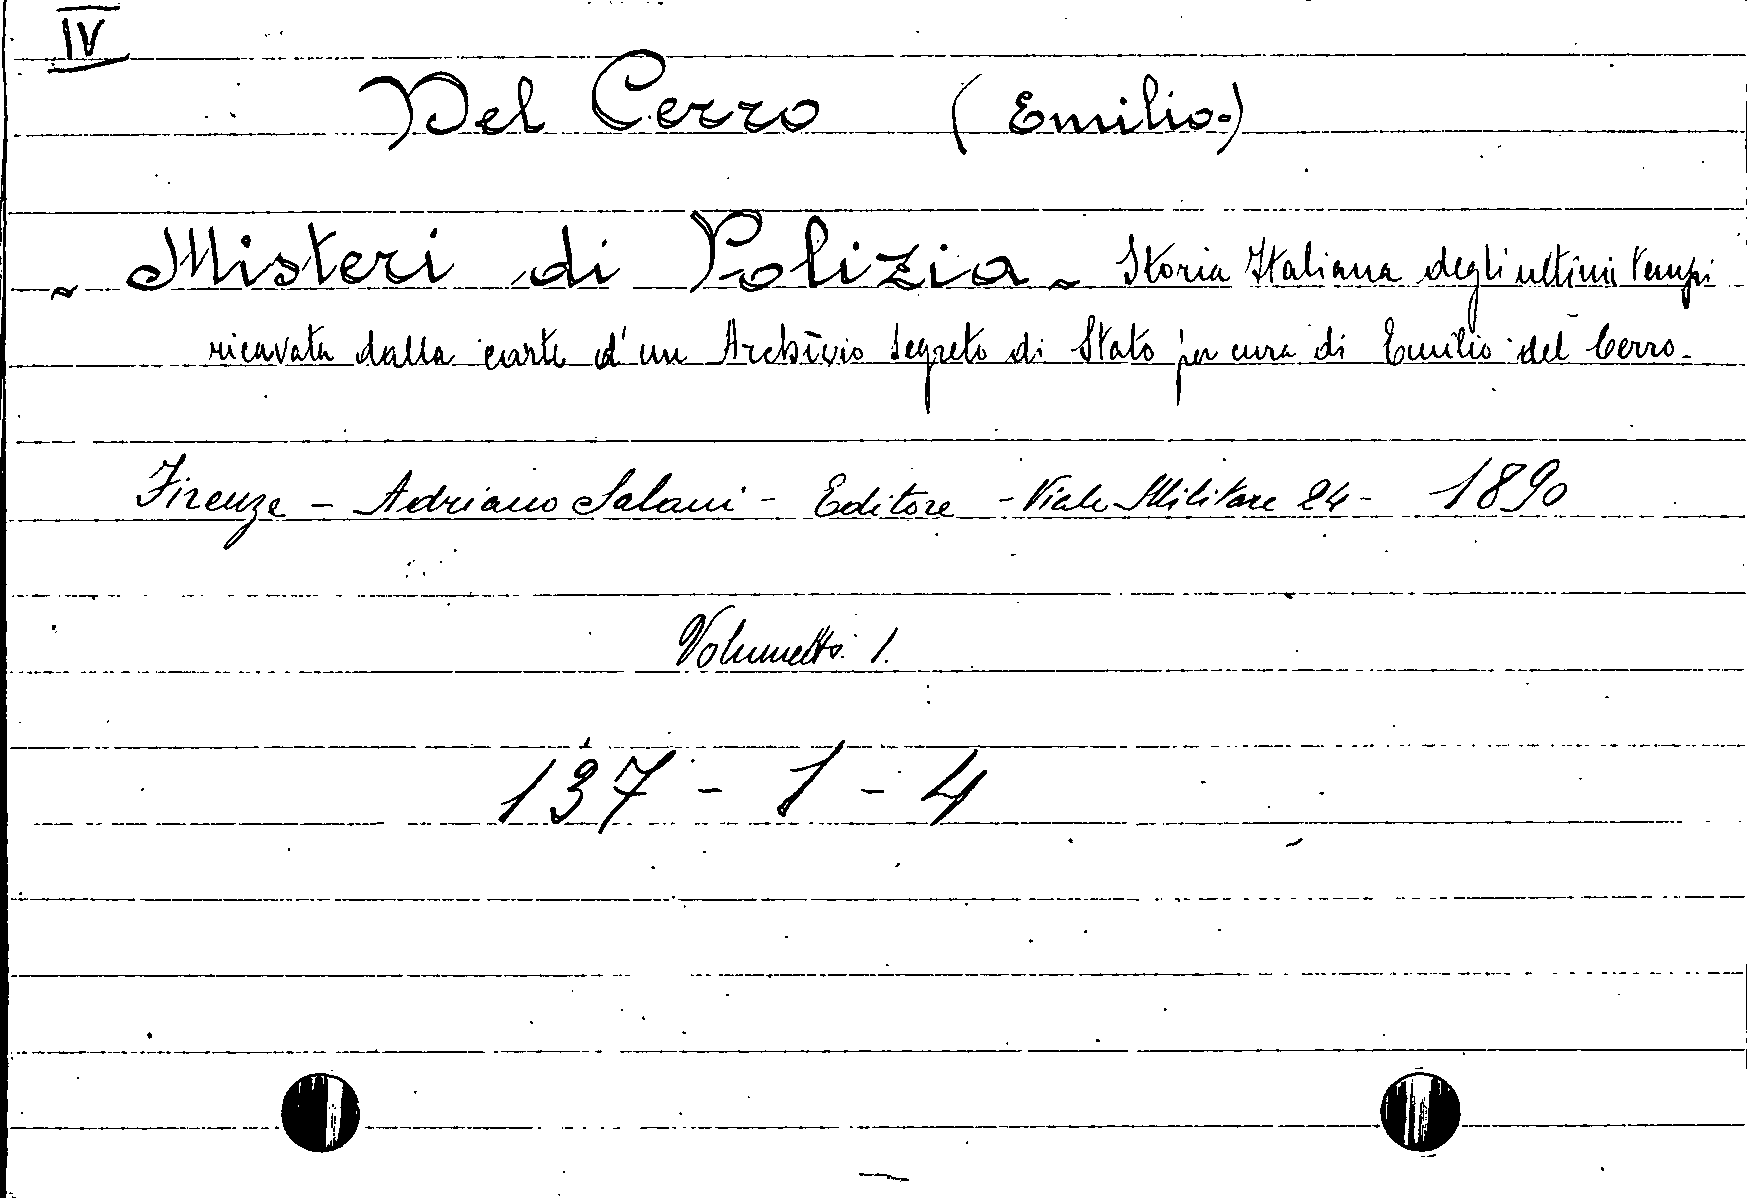 IV
Del Cerro (Emilio.)
~ Misteri di Polizia ~ Storia Italiana degli ultimi tempi
ricavata dalla carte d'un Archivio segreto di Stato per cura di Emilio del Cerro.
Firenze - Adriano Salani - Editore - Viale Militare 24 - 1890
Volumetti 1.
137 - 1 - 4